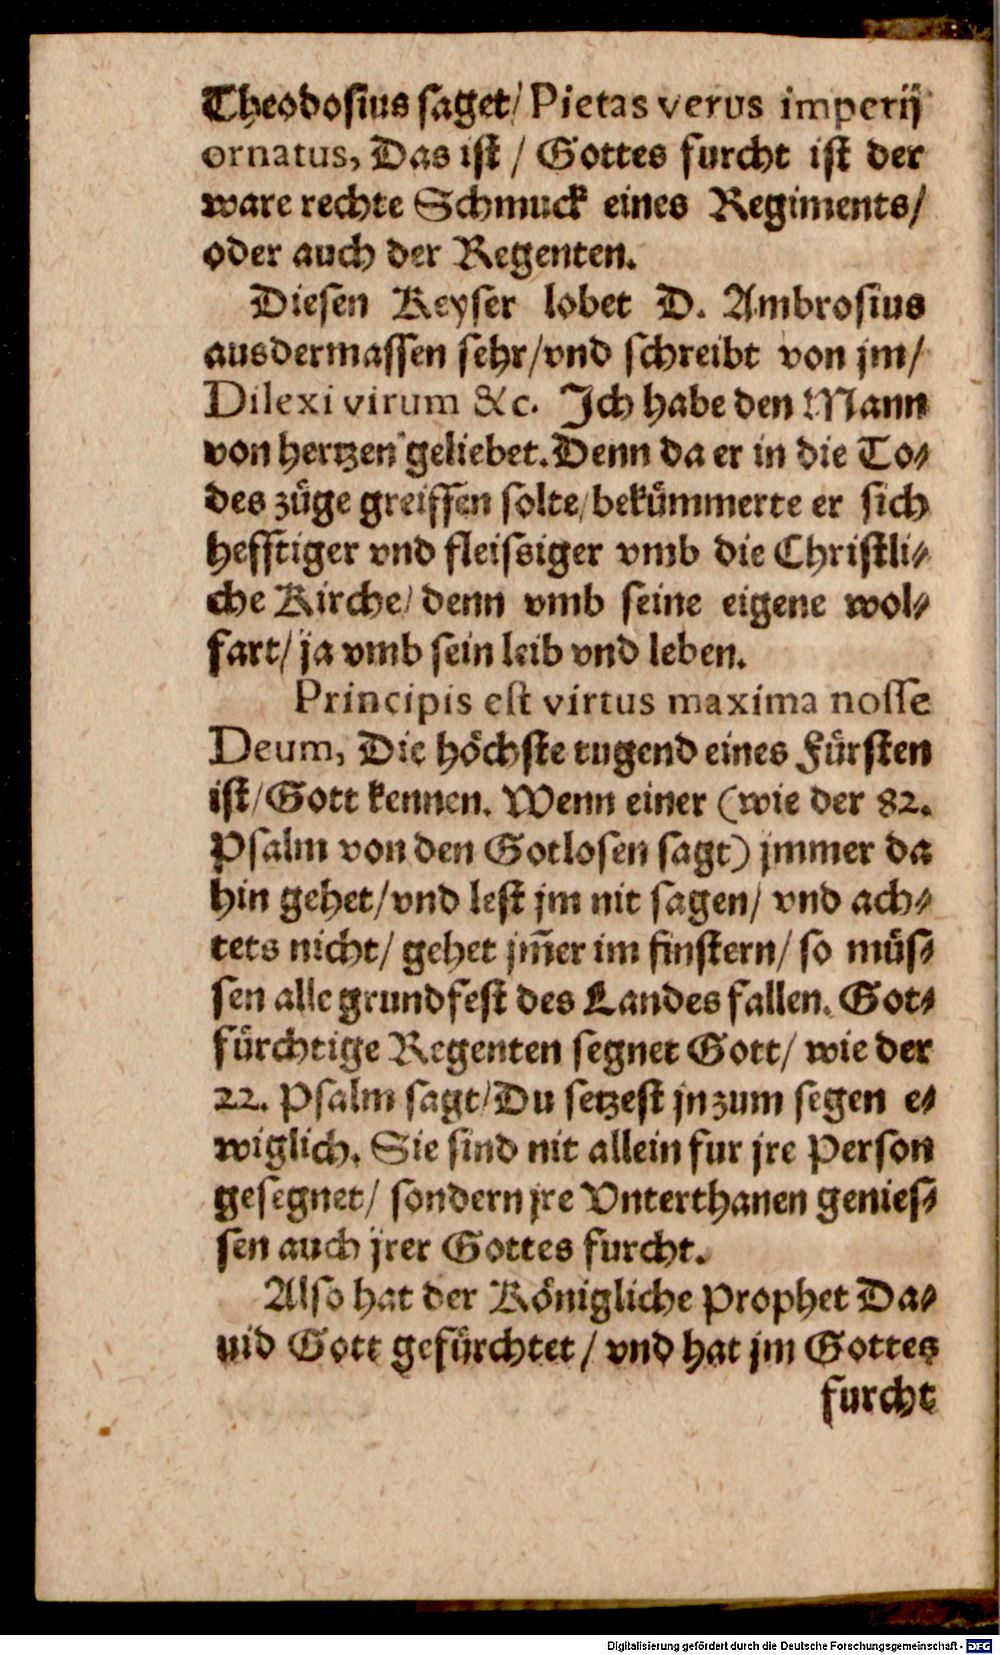 Theodosius saget/ Pietas verus imperij
ornatus, Das ist / Gottes furcht ist der
ware rechte Schmuck eines Regiments/
oder auch der Regenten.
Diesen Keyser lobet D. Ambrosius
ausdermassen sehr/vnd schreibt von jm/
Dilexi virum &c. Jch habe den Mann
von hertzen geliebet. Denn da er in die To-
des züge greiffen solte/bekümmerte er sich
hefftiger vnd fleissiger vmb die Christli-
che Kirche/ denn vmb seine eigene wol-
fart/ ja vmb sein leib vnd leben.
Principis est virtus maxima nosse
Deum, Die höchste tugend eines Fürsten
ist/Gott kennen. Wenn einer (wie der 82.
Psalm von den Gotlosen sagt) jmmer da
hin gehet/vnd lest jm nit sagen/ vnd ach-
tets nicht/ gehet jm̃er im finstern/ so müs-
sen alle grundfest des Landes fallen. Got-
fürchtige Regenten segnet Gott/ wie der
22. Psalm sagt/Du setzest jn zum segen e-
wiglich. Sie sind nit allein fur jre Person
gesegnet/ sondern jre Vnterthanen genies-
sen auch jrer Gottes furcht.
Also hat der Königliche Prophet Da-
uid Gott gefürchtet / vnd hat jm Gottes
furcht
Digitalisierung gefördert durch die Deutsche Forschungsgemeinschaft - DFG